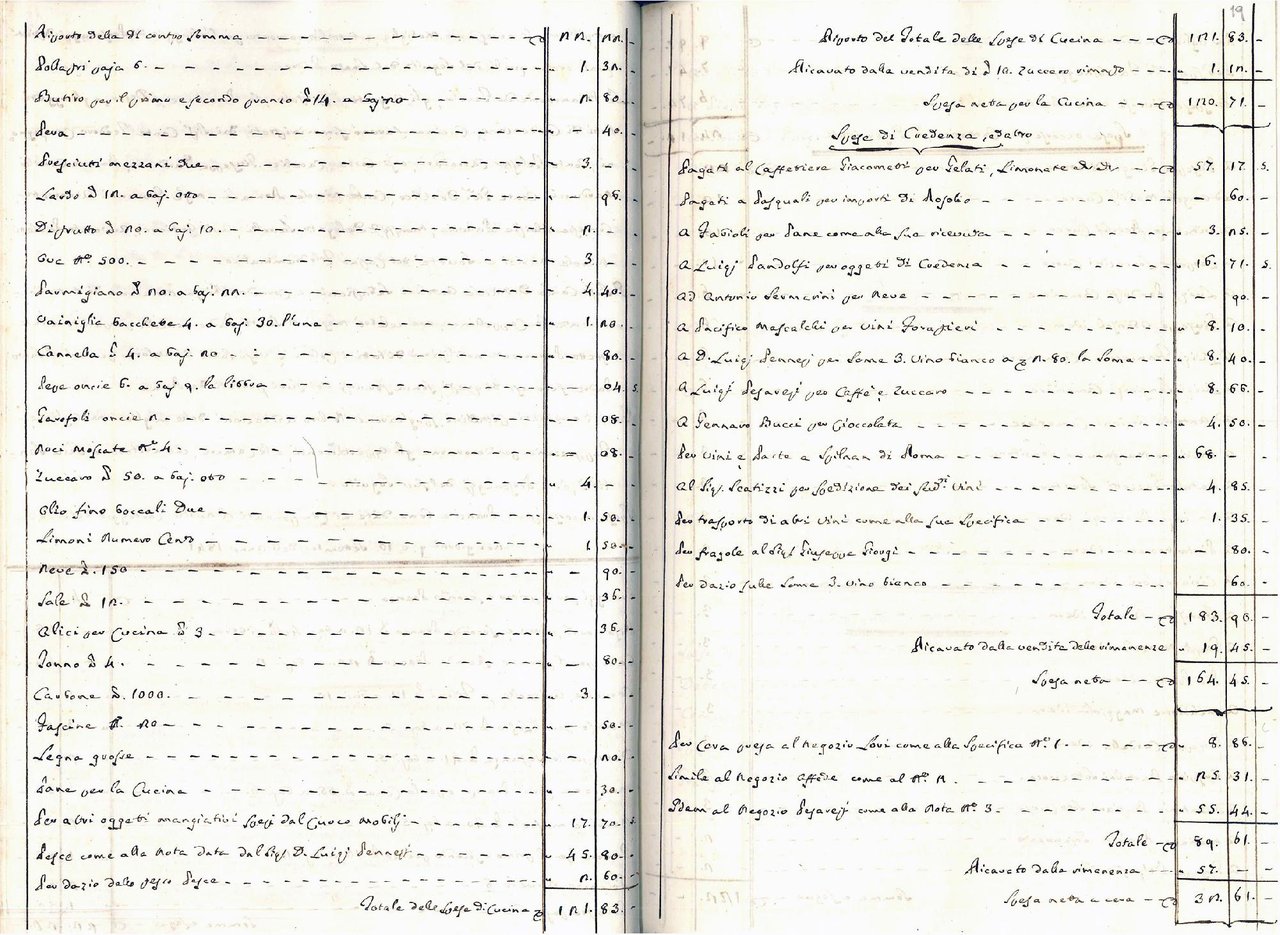 Riporto della di contro somma 22. 22.
Pollastri paja 6. 1. 32.
Butiro per il primo e secondo pranzo ℔ 14. a baj 20 2. 80
40.
Presciutti mezzani due 3. -
Lardo ℔ 12. a baj. otto 96.
Distrutto ℔ 20. a baj. 10. 2. -
Ove N.º 500. 3. -
Parmigiano ℔ 20. a baj. 22. 4. 40.
Vainiglia bacchette 4. a baj. 30. l'una 1. 20.
Cannella 4. a baj. 20 80.
Pepe oncie 6. a baj 9. la libbra 04. 5.
Garofoli oncie 2 08.
Noci Moscate N.º 4. 08.
Zuccaro ℔ 50. a baj. otto 4. -
Olio fino boccali Due 1. 50.
Limoni Numero Cento 1 50.
Neve ℔. 150 90.
Sale ℔ 12. 36.
Alici per Cucina ℔ 3. 36.
Tonno ℔ 4. 80.
Carbone ℔. 1000. 3. -
Fascine N. 20 50.
Legna grosse 20.
Pane per la Cucina 30.
Per altri oggetti mangiativi spesi dal Cuoco Mobilj 17. 70. 5.
Pesce come alla Nota data dal Sig.r D. Luigi Pennesi 45. 80.
Per dazio dello stesso Pesce 2. 60.
Totale delle Spese di Cucina 121. 83.
19
Riporto del Totale delle Spese di Cucina 121. 83.
Ricavato dalla vendita di ℔ 12. Zuccero rimasto 1. 12.
Spesa netta per la Cucina 120. 71.
Spese di Credenza, ed altro
Pagati al Caffettiere Giacometti per Gelati, Limonate 57. 17. 5.
Pagati a Pasquali per importi di Rosolio 60.
A Favioli per Pane come alla sua ricevuta 3. 25.
A Luigi Pandolfi per oggetti di Credenza 16. 71. 5.
Ad Antonio Sermarini per Neve 90.
A Pacifico Mascalchi per vini Forastieri 8. 10.
A D. Luigi Pennesi per Some 3. vino bianco a 2. 80. la Soma 8. 40.
A Luigi Pesaresi per Caffè e Zuccaro 8. 66.
A Gennaro Bucci per Cioccolata 4. 50.
Per Vini e Paste a Spilman di Roma 68. -
Al Sig.r Scatizzi per Spedizione dei sud.di Vini 4. 85.
Per trasporto di altri Vini come alla sua Specifica 1. 35.
Per fragole al Sig.r Giuseppe Giorgi 80.
Per dazio sulle Some 3. vino bianco 60.
Totale 183. 90.
Ricavato dalla vendita delle rimanenze 19. 45.
Spesa netta 164. 45.
Per Cera presa al Negozio Lovi come alla Specifica N.º 1. 8. 86.
Simile al Negozio Affede come al N.º 2. 25. 31.
Idem al Negozio Pesaresi come alla Nota N.º 3. 55. 44.
Totale 89. 61.
Ricavato dalla rimanenza 57. -
Spesa netta a cera 32. 61.